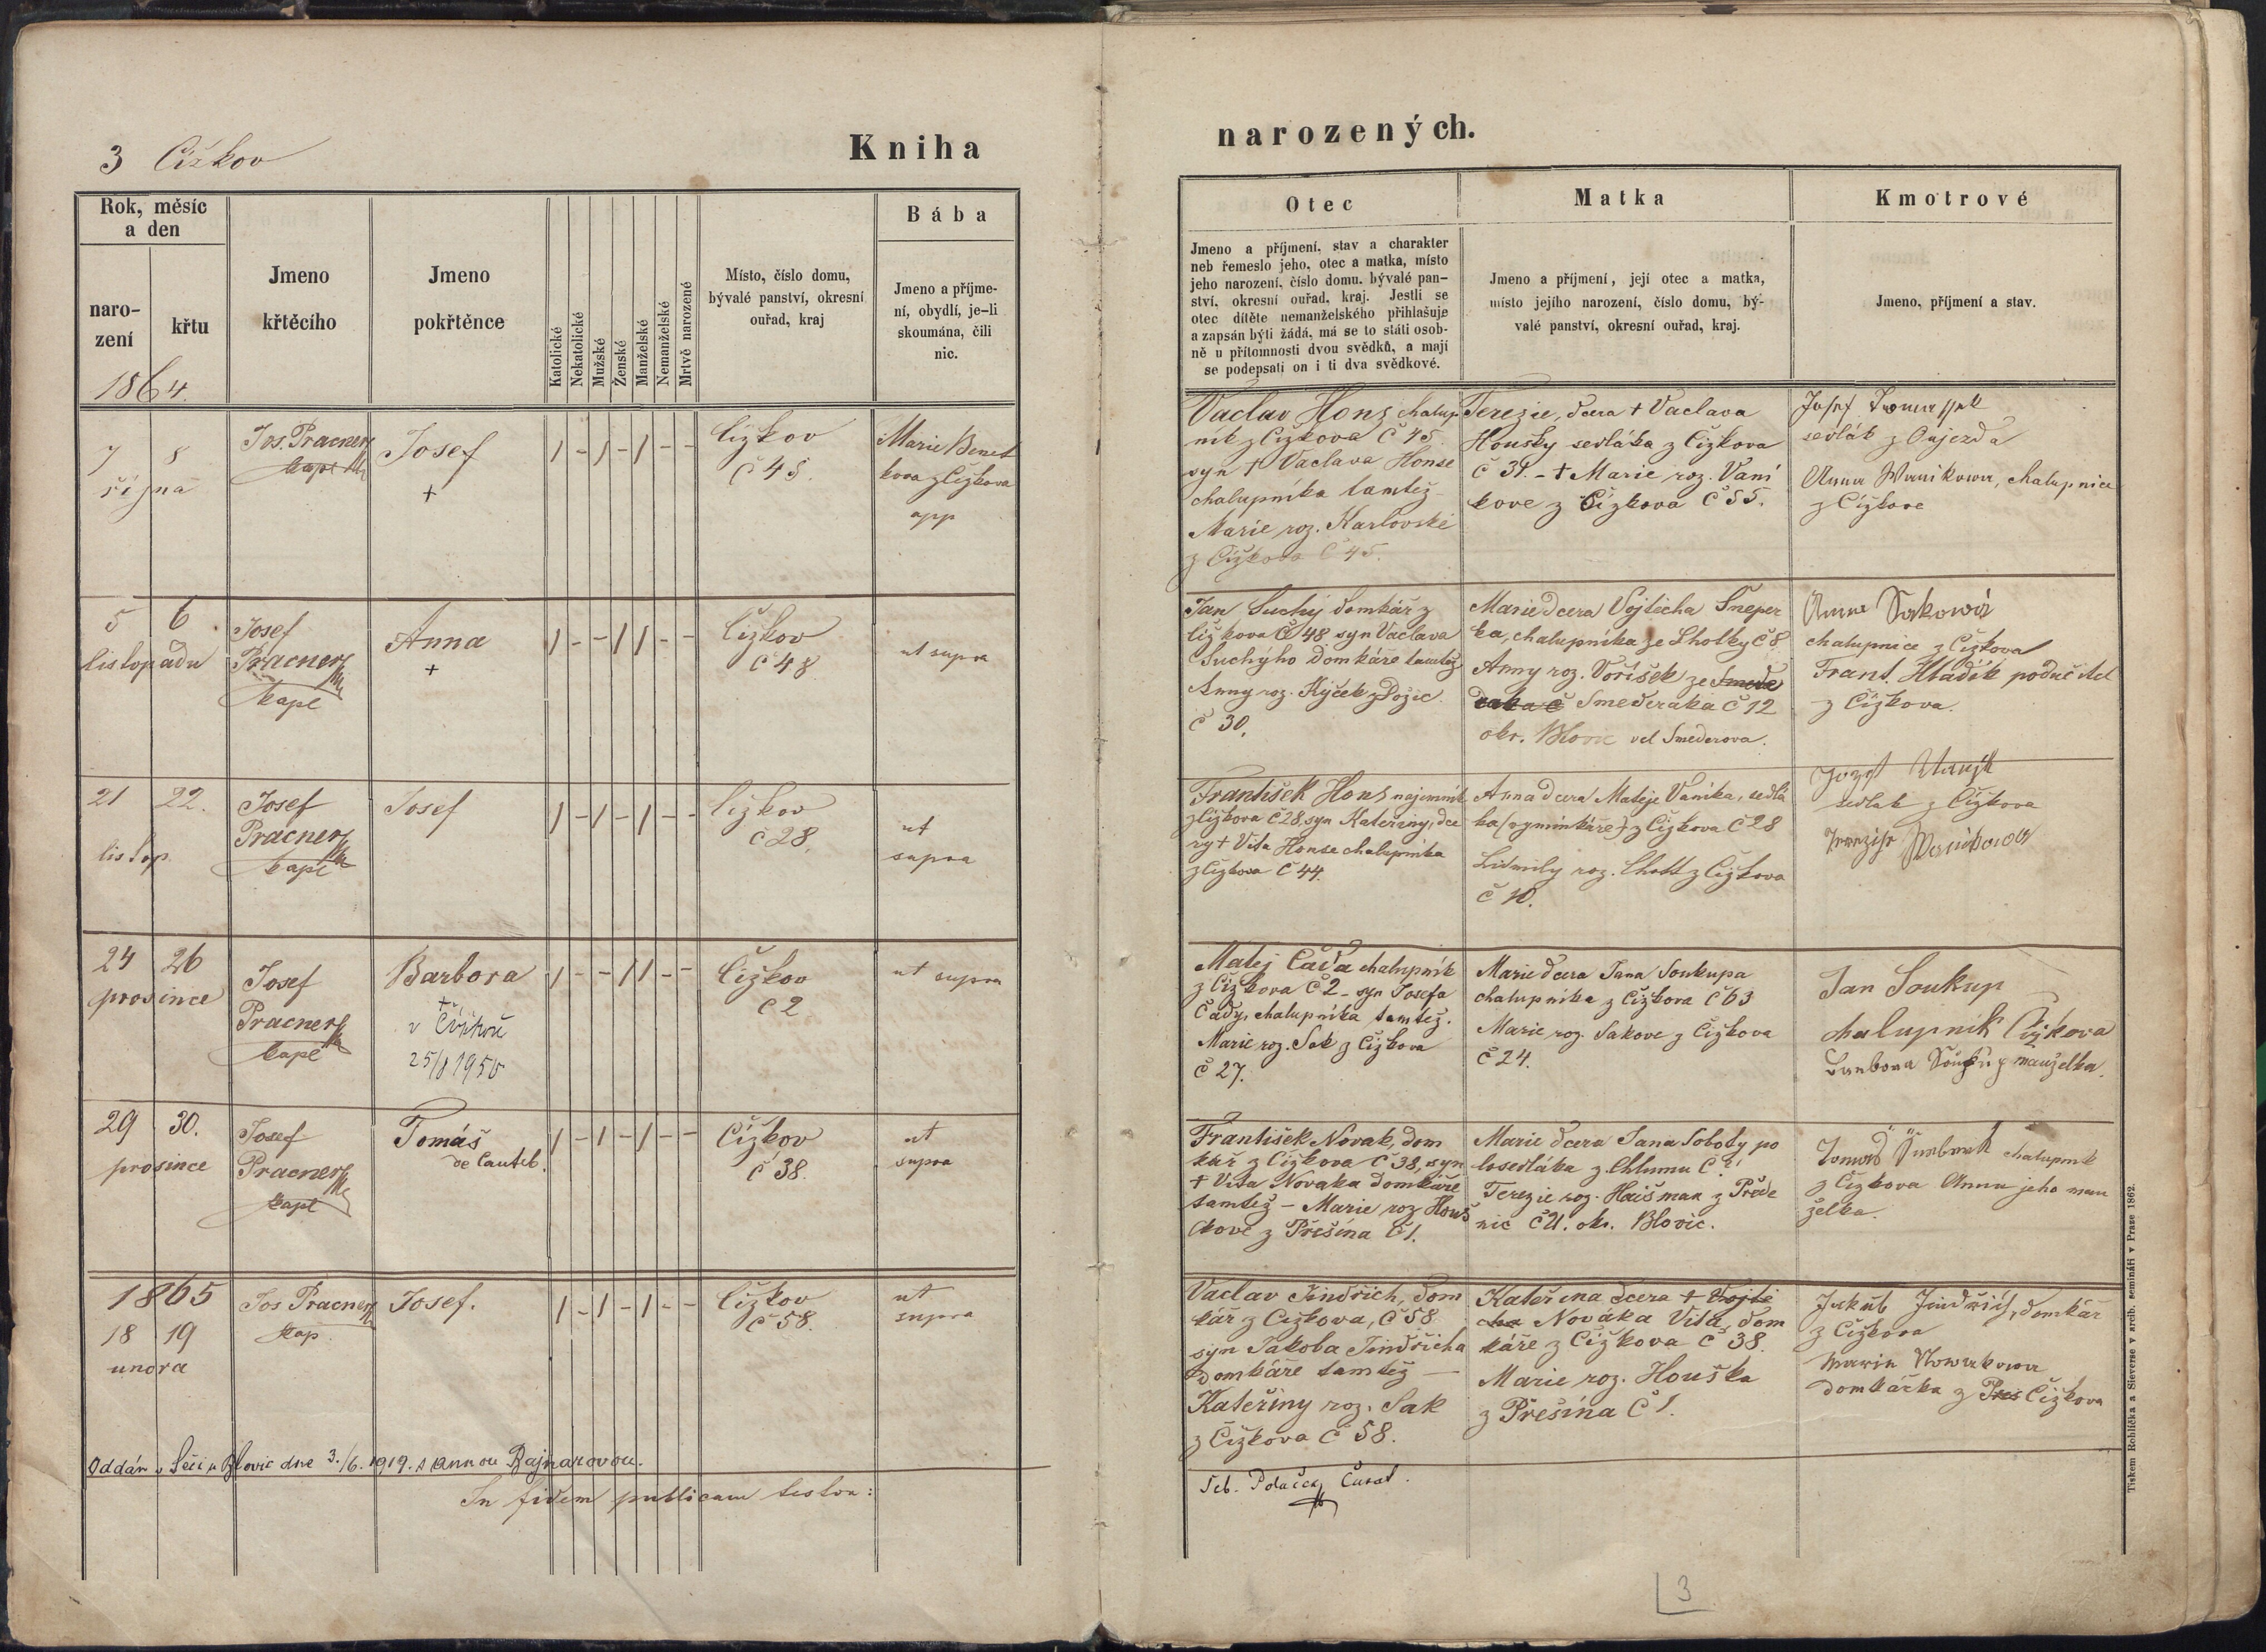 3 Čížkov
Kniha
narozených.
Rok, měsíc
a den
naro-
zení
křtu
1864.
Jmeno
křtěcího
Jmeno
pokřtěnce
Katolické
Nekatolické
Mužské
Ženské
Manželské
Nemanželské
Mrtvě narozené
Místo, číslo domu,
bývalé panství, okresní
ouřad, kraj
Bába
Jmeno a příjme-
ní, obydlí, je-li
skoumána, čili
nic.
Otec
Jmeno a příjmení, stav a charakter
neb řemeslo jeho, otec a matka, místo
jeho narození, číslo domu, bývalé pan-
ství, okresní ouřad, kraj. Jestli se
otec dítěte nemanželského přihlašuje
a zapsán býti žádá, má se to státi osob-
ně u přítomnosti dvou svědků, a mají
se podepsati on i ti dva svědkové.
Matka
Jmeno a příjmení, její otec a matka,
místo jejího narození, číslo domu, bý-
valé panství, okresní ouřad, kraj.
Kmotrové
Jmeno, příjmení a stav.
7 8
října
Jos. Pracner
kapl
Josef
+
1 - 1 - 1 - -
Čížkov
č 45
Marie Benet
kova z Čížkova
app
Vaclav Hons chalup
ník z Čížkova č 45.
syn + Vaclava Honse
chalupníka tamtéž
Marie roz. Karlovské
z Čížkova č 45.
Terezie, dcera + Vaclava
Housky sedláka z Čížkova
č 34. - + Marie roz. Vaní
kove z Čížkova č 55.
Josef
sedlák z Oujezda
Anna Wanikowa, chalupnice
z Čížkova
5 6
listopadu
Josef
Pracner
kapl
Anna
+
1 - - 1 1 - -
Čížkov
č 48
ut supra
Jan Suchý domkář z
Čížkova č 48 syn Vaclava
Suchýho domkáře tamtéž
Anny roz. Kýček z Požic
č 30.
Marie dcera Vojtěcha Šneper
ka, chalupníka ze Lhotky č 8.
Anny roz. Voříšek ze Smede
raka č Smederáka č 12
okr. Blovic vel Smederova.
Anna Sakowá
chalupnice z Čížkova
Frant. Hladík podučitel
z Čížkova.
21 22.
listop.
Josef
Pracner
kapl
Josef
1 - 1 - 1 - -
Čížkov
č 28.
ut
supra
František Hons najemník
z Čížkova č 28. syn Kateřiny, dce
ry + Víta Honse chalupníka
z Čížkova č 44.
Anna dcera Matěje Vaníka, sedlá
ka (vyminkáře) z Čížkova č 28
Lidmily roz. Chott z Čížkova
č 10.
Jozef Wanjk
sedlak z Čížkova
Terezije Wanikowa
24 26
prosince
Josef
Pracner
kapl
Barbora
+
v Čížkově
25/8 1950
1 - - 1 1 - -
Čížkov
č 2
ut supra
Matěj Čada chalupník
z Čížkova č 2 - syn Josefa
Čady, chalupníka tamtéž.
Marie roz. Sak z Čížkova
č 27.
Marie dcera Jana Soukupa
chalupníka z Čížkova č 63
Marie roz. Sakove z Čížkova
č 24.
Jan Soukup
chalupník Čížkova
Barbora Soukup manželka.
29 30.
prosince
Josef
Pracner
kapl
Tomáš
de Canteb.
1 - 1 - 1 - -
Čížkov
č 38.
ut
supra
František Novak, dom
kář z Čížkova č 38, syn
+ Víta Novaka domkáře
tamtéž - Marie roz Houš
kove z Přešína č 1.
Marie dcera Jana Soboty po
losedláka z Chlumu č
Terezie roz. Haišman z Přede
nic č 21. okr. Blovic.
Tomaš chalupnik
z Čížkova Anna jeho man
želka.
1865
18 19
unora
Jos Pracner
kap.
Josef.
1 - 1 - 1 - -
Čížkov
č 58.
ut
supra
Vaclav Jindřich, dom
kář z Čížkova, č 58
syn Jakoba Jindřicha
domkáře tamtéž —
Kateřiny roz. Sak
z Čížkova č 58.
Kateřina dcera + Vojtě
cha Nováka Víta, dom
káře z Čížkova č 38.
Marie roz. Houška
z Přešína č 1.
Jakub Jindřich, domkář
z Čížkova
Marie Nowakowa
domkářka z Přeš Čížkova
Oddán v Seči u Blovic dne 3./6. 1919. s Annou Bajnarovou.
In fidem publicam testor:
Feb. Polaček Curat.
3
Tiskem Rohlíčka a Sieverse v arcib. semináři v Praze 1862.